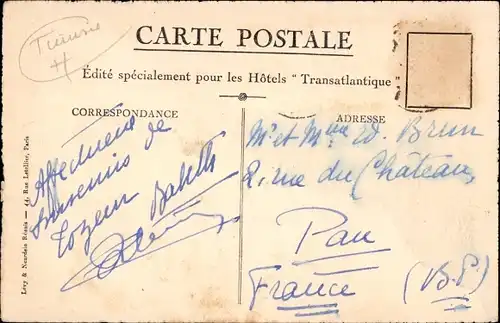 Tunisie
CARTE POSTALE
Édité spécialement pour les Hôtels "Transatlantique"
CORRESPONDANCE
Affectueux
souvenirs de
Tozeur
ADRESSE
Mr et Mme W. Brun
2, rue du Château,
Pau
France (B.P)
Lévy & Neurdein Réunis — 44, Rue Letellier, Paris